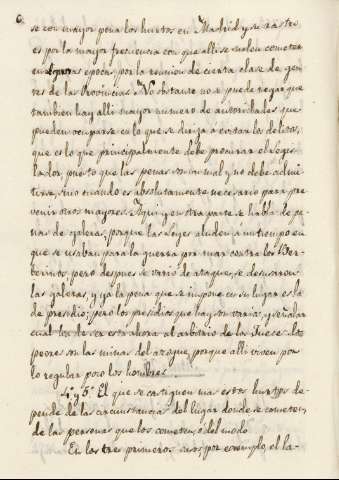 6
se con mayor pena los hurtos en Madrid y su rastro
es por la mayor frecuencia con que alli se suelen cometer
en epocas, por la reunion de cierta clase de gen-
tes de las Provincias. No obstante no se puede negar que
tambien hay alli mayor numero de autoridades que
pueden ocuparse en lo que se dirija a evitar los delitos,
que es lo que principalmente debe procurar el Legis-
lador, puesto que las penas son un mal, y no debe admi-
tirse, sino cuando es absolutamente necesario para pre-
venir otros mayores. Aqui y en otra parte se habla de pe-
nas de galeras, porque las Leyes aluden a un tiempo en
que se usaban para la guerra por mar contra los Ber-
beriscos, pero despues se vario de ataque, se desusaron
las galeras, y ya la pena que se impone en su lugar es la
de presidio; pero los presidios que hay son varios, y señalar
cual ha de ser esta ahora al arbitrio de los Jueces. Los
peores son las minas del azogue, porque alli viven por
lo regular poco los hombres
4ª y 5ª El que se castiguen mas estos hurtos de-
pende de las circunstancias del lugar donde se cometen,
de las personas que los cometen, o del modo
En los tres primeros casos, por exemplo, el la-